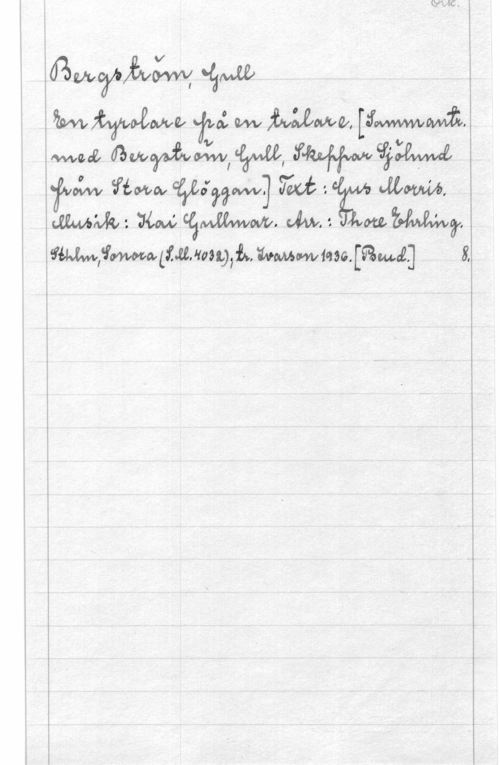 Ork.
Bergström, Gull
En tyrolare på en trålare. [Sammantr.
med Bergström, Gull, Skeppar Sjölund
från Stora Glöggan.] Text: Gus Morris.
Musik: Kai Gullmar. Arr.: Thore Ehrling.
Sthlm, Sonora (S.M. 4032); tr. Ivarson 1936. [Beud.] 8.